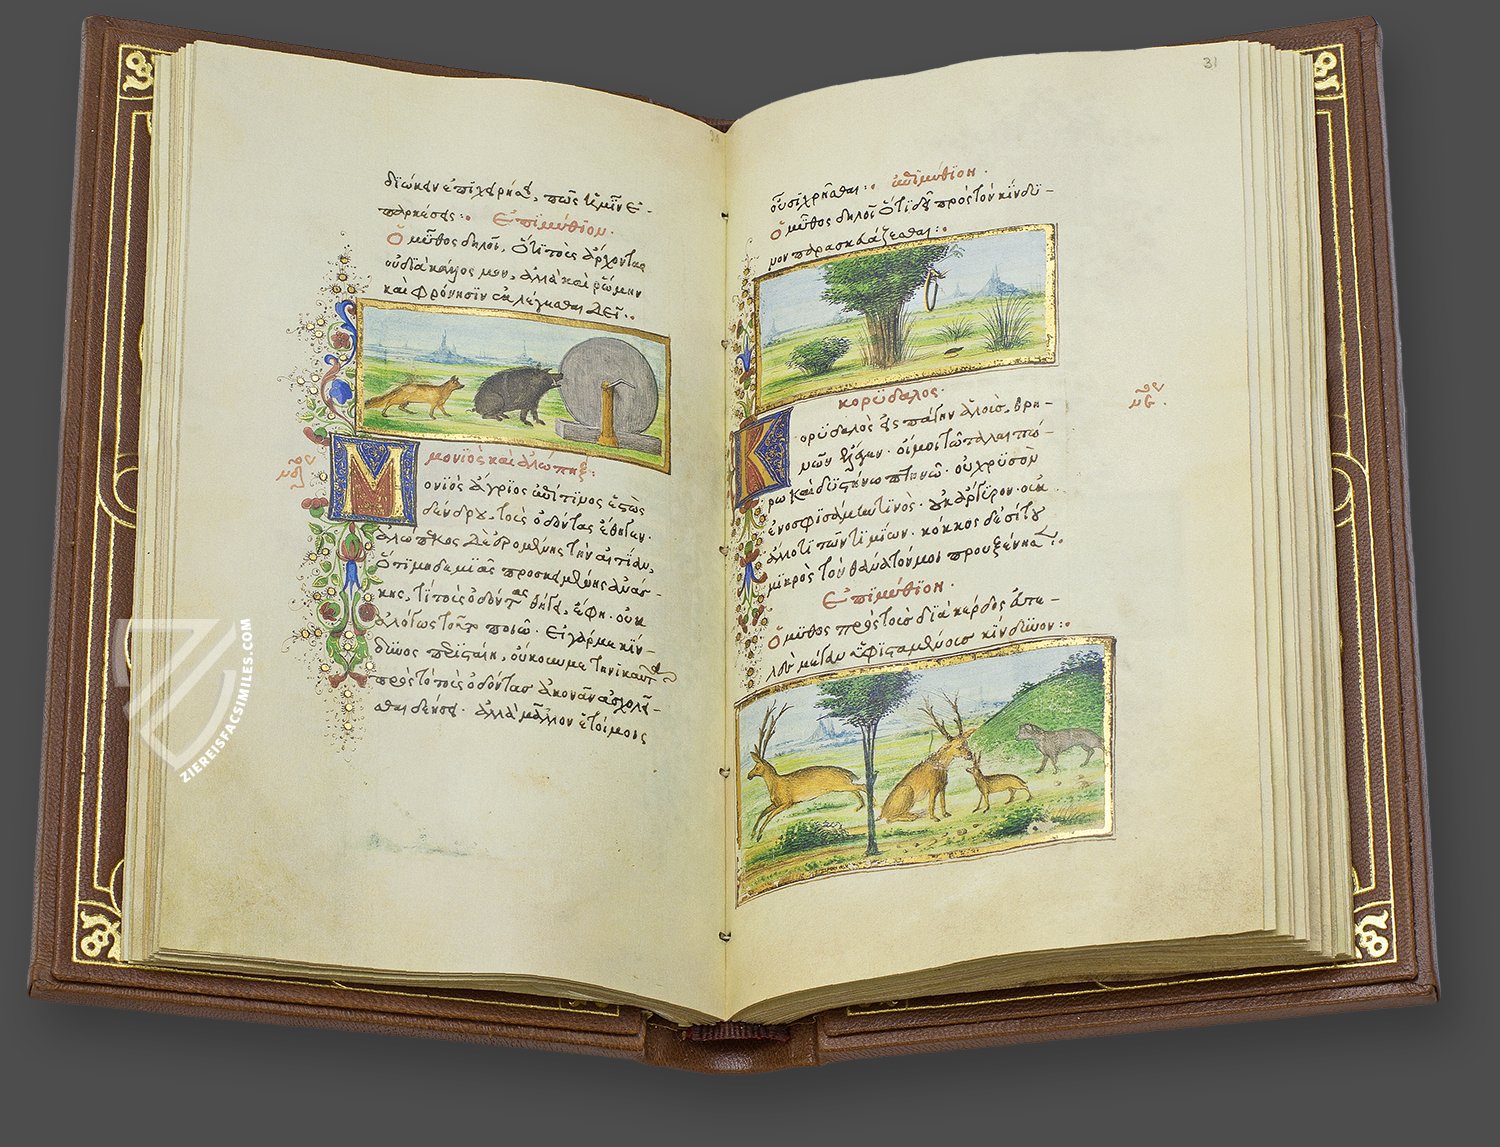 διώκαν ἐπιχαρήσας, πῶς ἡμῖν ἐ-
παρκέσεις:
Ἐπιμύθιον.
Ὁ μῦθος δηλοῖ, ὅτι τοὺς ἄρχοντας
οὐ διὰ κάλλος μόνον, ἀλλὰ καὶ ῥώμην
καὶ φρόνησιν ἐκλέγεσθαι δεῖ:
μονιὸς καὶ ἀλώπηξ:
Μονιὸς ἄγριος ἐπί τινος ἑστὼς
δένδρου, τοὺς ὀδόντας ἔθηγεν.
ἀλώπεκος δὲ ἐρομένης τὴν αἰτίαν,
ὅτι μηδεμιᾶς προκειμένης ἀνάγ-
κης, τοὺς ὀδόντας θήγει, ἔφη. οὐκ
ἀλόγως τοῦτο ποιῶ. εἰ γάρ με κίν-
δυνος περισταίη, οὐκ
πρὸς τὸ τοὺς ὀδόντας ἀκονᾶν ἀσχολεῖ-
σθαι δεήσει. ἀλλὰ μᾶλλον ἑτοίμοις
31
οὖσι χρῆσθαι:
ἐπιμύθιον.
Ὁ μῦθος δηλοῖ ὅτι δεῖ πρὸς τὸν κίνδυ-
νον παρασκευάζεσθαι:
κορύδαλος.
Κορύδαλος εἰς πάγην ἁλοὺς, θρη-
νῶν ἔλεγεν. οἴμοι τῷ ταλαιπώ-
ρῳ καὶ δυστήνῳ πτηνῷ. οὐ χρυσὸν
ἐνοσφισάμην τινὸς. οὐκ ἄργυρον. οὐκ
ἄλλο τι τῶν τιμίων. κόκκος δὲ σίτου
μικρὸς τὸν θάνατόν μοι προυξένησεν:
Ἐπιμύθιον.
Ὁ μῦθος πρὸς τοὺς διὰ κέρδος εὐτε-
λὲς μέγαν ὑφισταμένους κίνδυνον:
ZIEREISFACSIMILES.COM